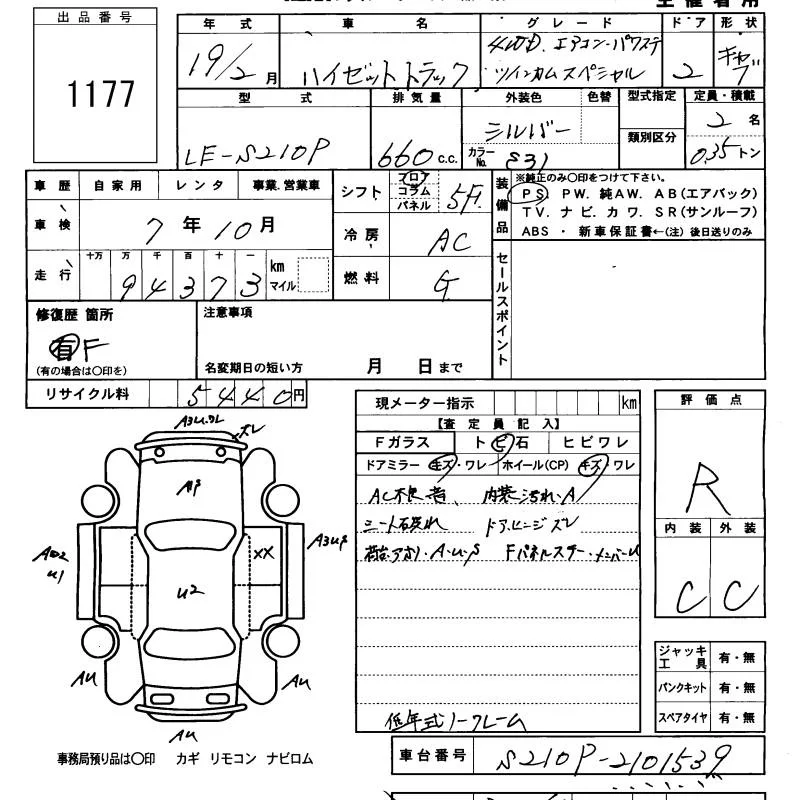 出品番号
1177
年式 車名 グレード ドア 形状
19/2月 ハイゼットトラック 4WD.エアコン・パワステ
ツインカムスペシャル 2 キャブ
型式 排気量 外装色 色替 型式指定 定員・積載
LE-S210P 660 c.c. シルバー 2名
カラーNo. S31 類別区分 0.35トン
車歴 自家用 レンタ 事業、営業車
車検 7年10月
走行 十万 万 千 百 十 一 km マイル
94373
シフト フロア コラム パネル 5F
冷房 AC
燃料 G
装備品 ※純正のみ〇印をつけて下さい。
PS. PW. 純AW. AB(エアバック)
TV. ナビ. カワ. SR(サンルーフ)
ABS ・ 新車保証書←(注) 後日送りのみ
セールスポイント
修復歴 箇所
有 F
(有の場合は〇印を)
注意事項
名変期日の短い方 月 日まで
リサイクル料 5440円
現メーター指示 km
【査定員記入】
Fガラス トビ石 ヒビワレ
ドアミラー キズ・ワレ ホイール(CP) キズ・ワレ
AC不良 内装汚れ・A
シート破れ ドアヒンジズレ
低年式ノークレーム
評価点
R
内装 外装
C C
ズレ
XX
U2
AU
AU
AU
ジャッキ工具 有・無
パンクキット 有・無
スペアタイヤ 有・無
事務局預り品は〇印 カギ リモコン ナビロム
車台番号 S210P-2101539